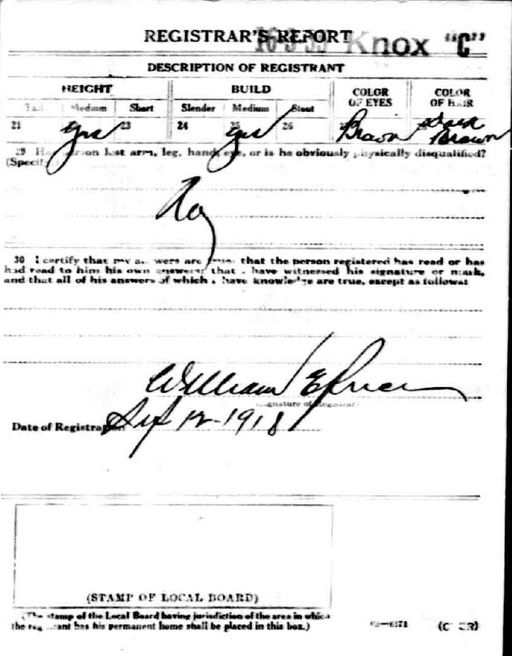 REGISTRAR'S REPORT
Knox "C"
DESCRIPTION OF REGISTRANT
HEIGHT BUILD COLOR OF EYES COLOR OF HAIR
Tall Medium Short Slender Medium Stout
21 yes 23 24 yes 26 Brown Dark Brown
29 Has person lost arm, leg, hand, eye, or is he obviously physically disqualified?
(Specify
No
30 I certify that my answers are true; that the person registered has read or has
had read to him his own answers; that I have witnessed his signature or mark,
and that all of his answers of which I have knowledge are true, except as follows:
William E
Signature of Registrar
Date of Registration Sep 12-1918
(STAMP OF LOCAL BOARD)
(The stamp of the Local Board having jurisdiction of the area in which
the registrant has his permanent home shall be placed in this box.)